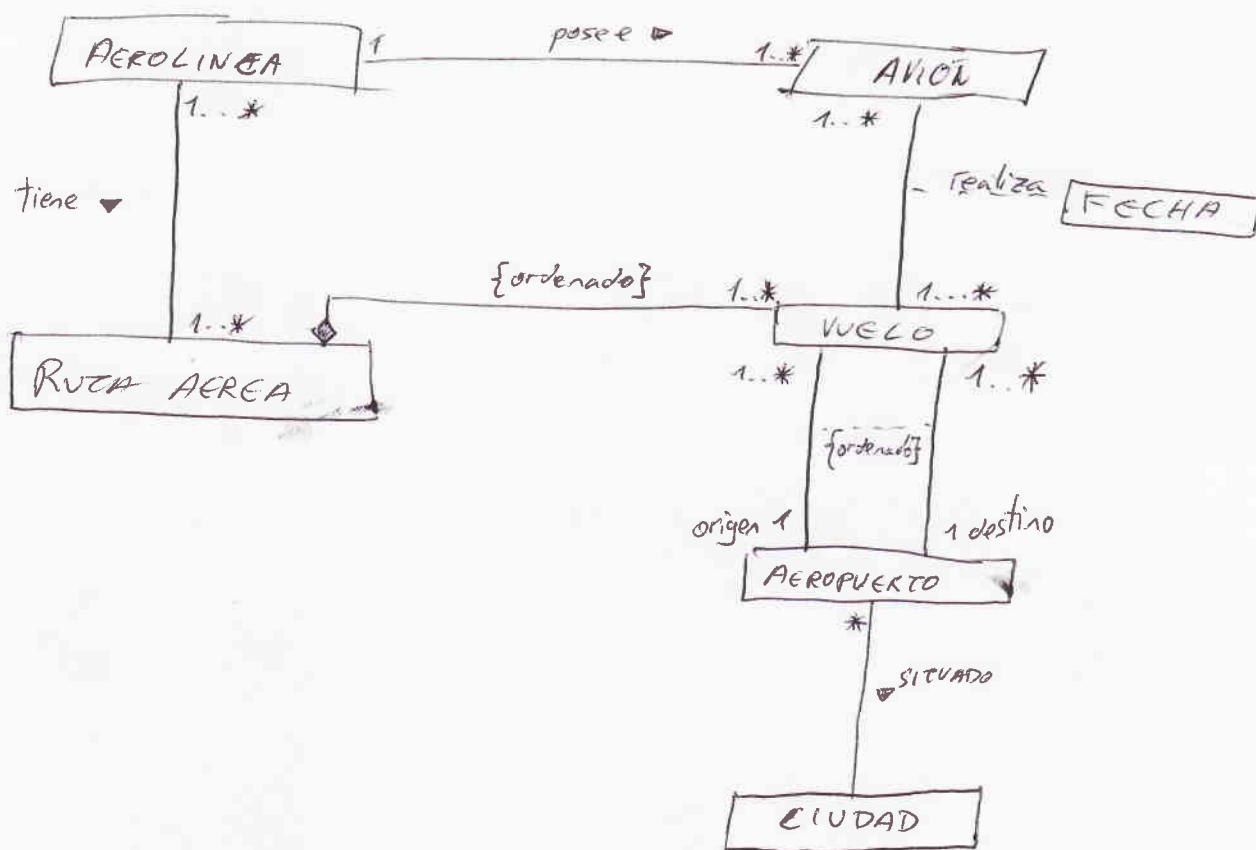 AEROLINEA
1
posee ►
1..*
AVIÓN
1..*
1..*
tiene ▼
realiza
FECHA
{ordenado}
1..*
1...*
1..*
VUELO
RUTA AEREA
1..*
1..*
{ordenado}
origen 1
1 destino
AEROPUERTO
*
▼ SITUADO
CIUDAD